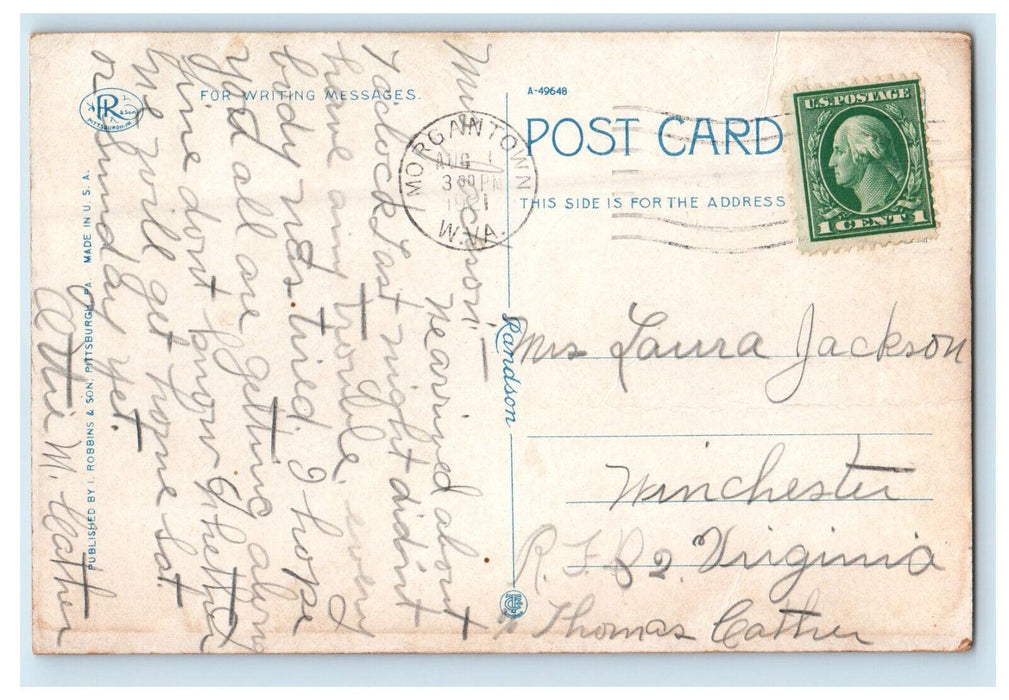 FOR WRITING MESSAGES.
A-49648
POST CARD
THIS SIDE IS FOR THE ADDRESS
MORGANTOWN
AUG 1
3 PM
1921
W.VA.
U.S. POSTAGE
1 CENT 1
R
PITTSBURGH, PA.
PUBLISHED BY I. ROBBINS & SON. PITTSBURGH, PA. MADE IN U.S.A.
Randson
Mrs Jackson:—
We arived about
7 oclock last night didint
have any trouble, every
body was tired. I hope
you all are getting along
fine dont know whether
we will get home Sat
or Sunday yet.
Ottie M. Cather
Mrs Laura Jackson
Winchester
R.F.D 2. Virginia
% Thomas Cather